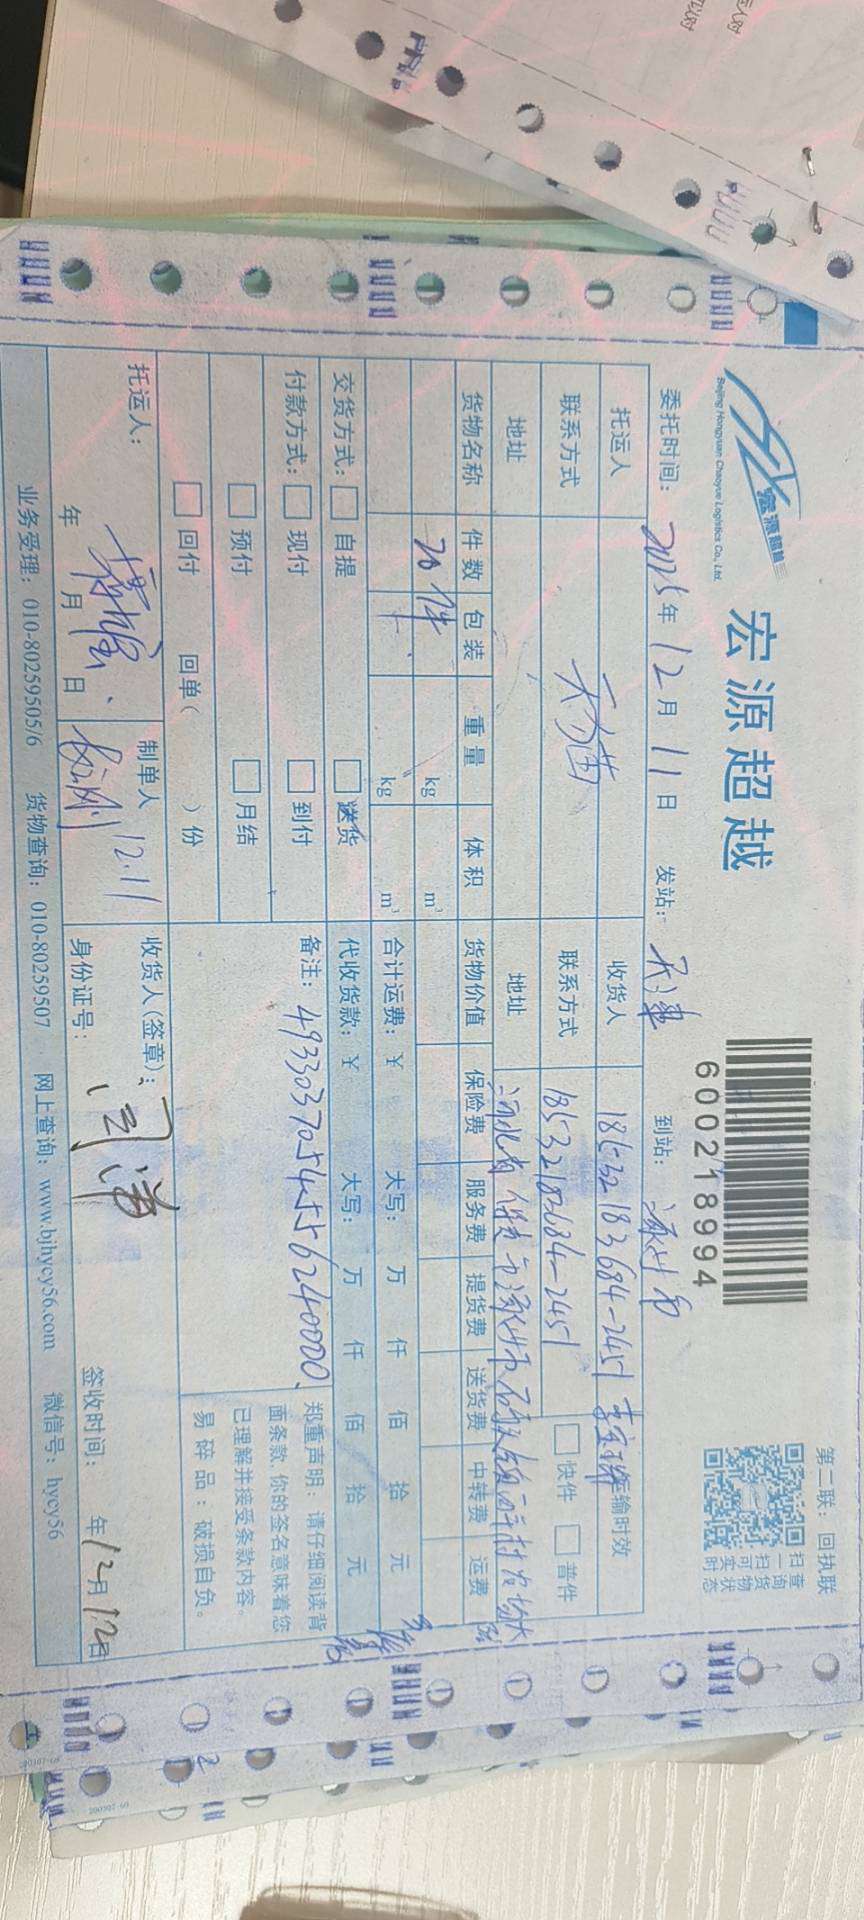 宏源超越
Beijing Hongyuan Chaoyue Logistics Co., Ltd.
宏源超越
600218994
第二联：回执联
扫一扫
查询货物
可实时状态
委托时间：2025年12月11日 发站：天津 到站：涿州市
托运人 收货人 18532183684-2451 李宝 运输时效
联系方式 联系方式 18532183684-2451 快件 普件
地址 地址 河北省保定市涿州市
货物名称 件数 包装 重量 体积 货物价值 保险费 服务费 提货费 送货费 中转费 运费
20件 kg m³ 合计运费：¥ 大写： 万 仟 佰 拾 元
kg m³ 代收货款：¥ 大写： 万 仟 佰 拾 元
交货方式： 自提 送货
付款方式： 现付 到付
预付 月结
回付 回单（ ）份
备注：4933037054556240000
郑重声明：请仔细阅读背
面条款，你的签名意味着您
已理解并接受条款内容。
易碎品：破损自负。
托运人： 年 月 日
制单人 12.11
收货人(签章)：闫
身份证号： 签收时间： 年12月12日
业务受理：010-80259505/6 货物查询：010-80259507 网上查询：www.bjhycy56.com 微信号：hycy56